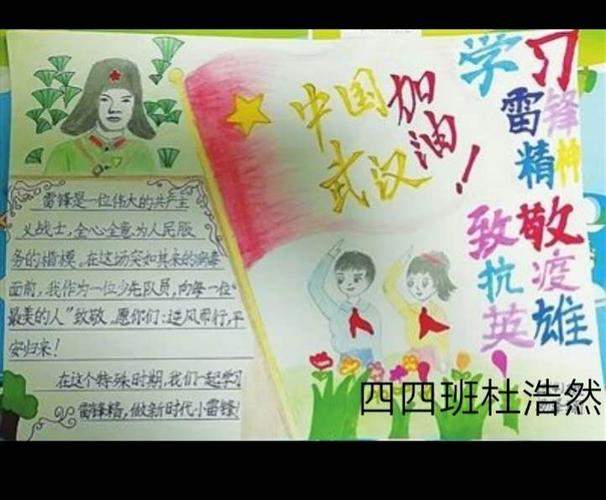 学习
雷锋
精神
致敬
抗疫
英雄
中国加油
武汉！
雷锋是一位伟大的共产主
义战士，全心全意为人民服
务的楷模。在这场突如其来的病毒
面前，我作为一位少先队员，向每一位
最美的人"致敬，愿你们：逆风而行，平
安归来！
在这个特殊时期，我们一起学习
雷锋精，做新时代小雷锋！
四四班杜浩然